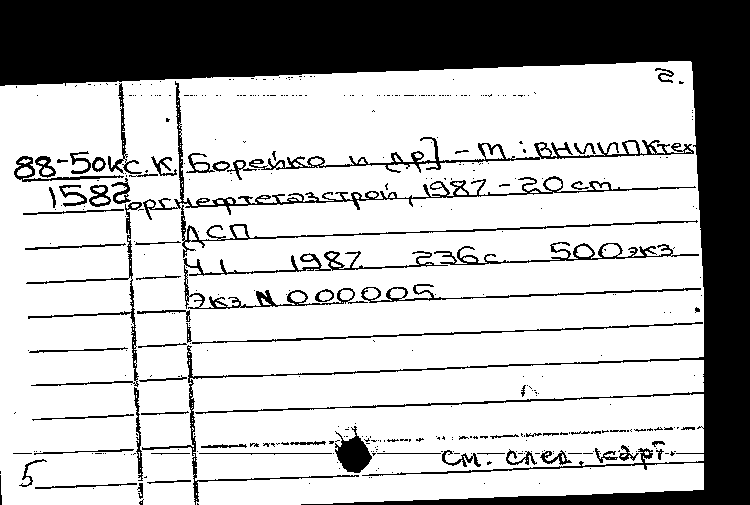 2.
88-50к С.К. Борейко и др.] - М.: ВНИИПКтех
1582 оргнефтегазстрой, 1987. - 20 см.
ДСП.
Ч.1. 1987. 236 с. 500 экз.
Экз. N 000005.
5 см. след. карт.